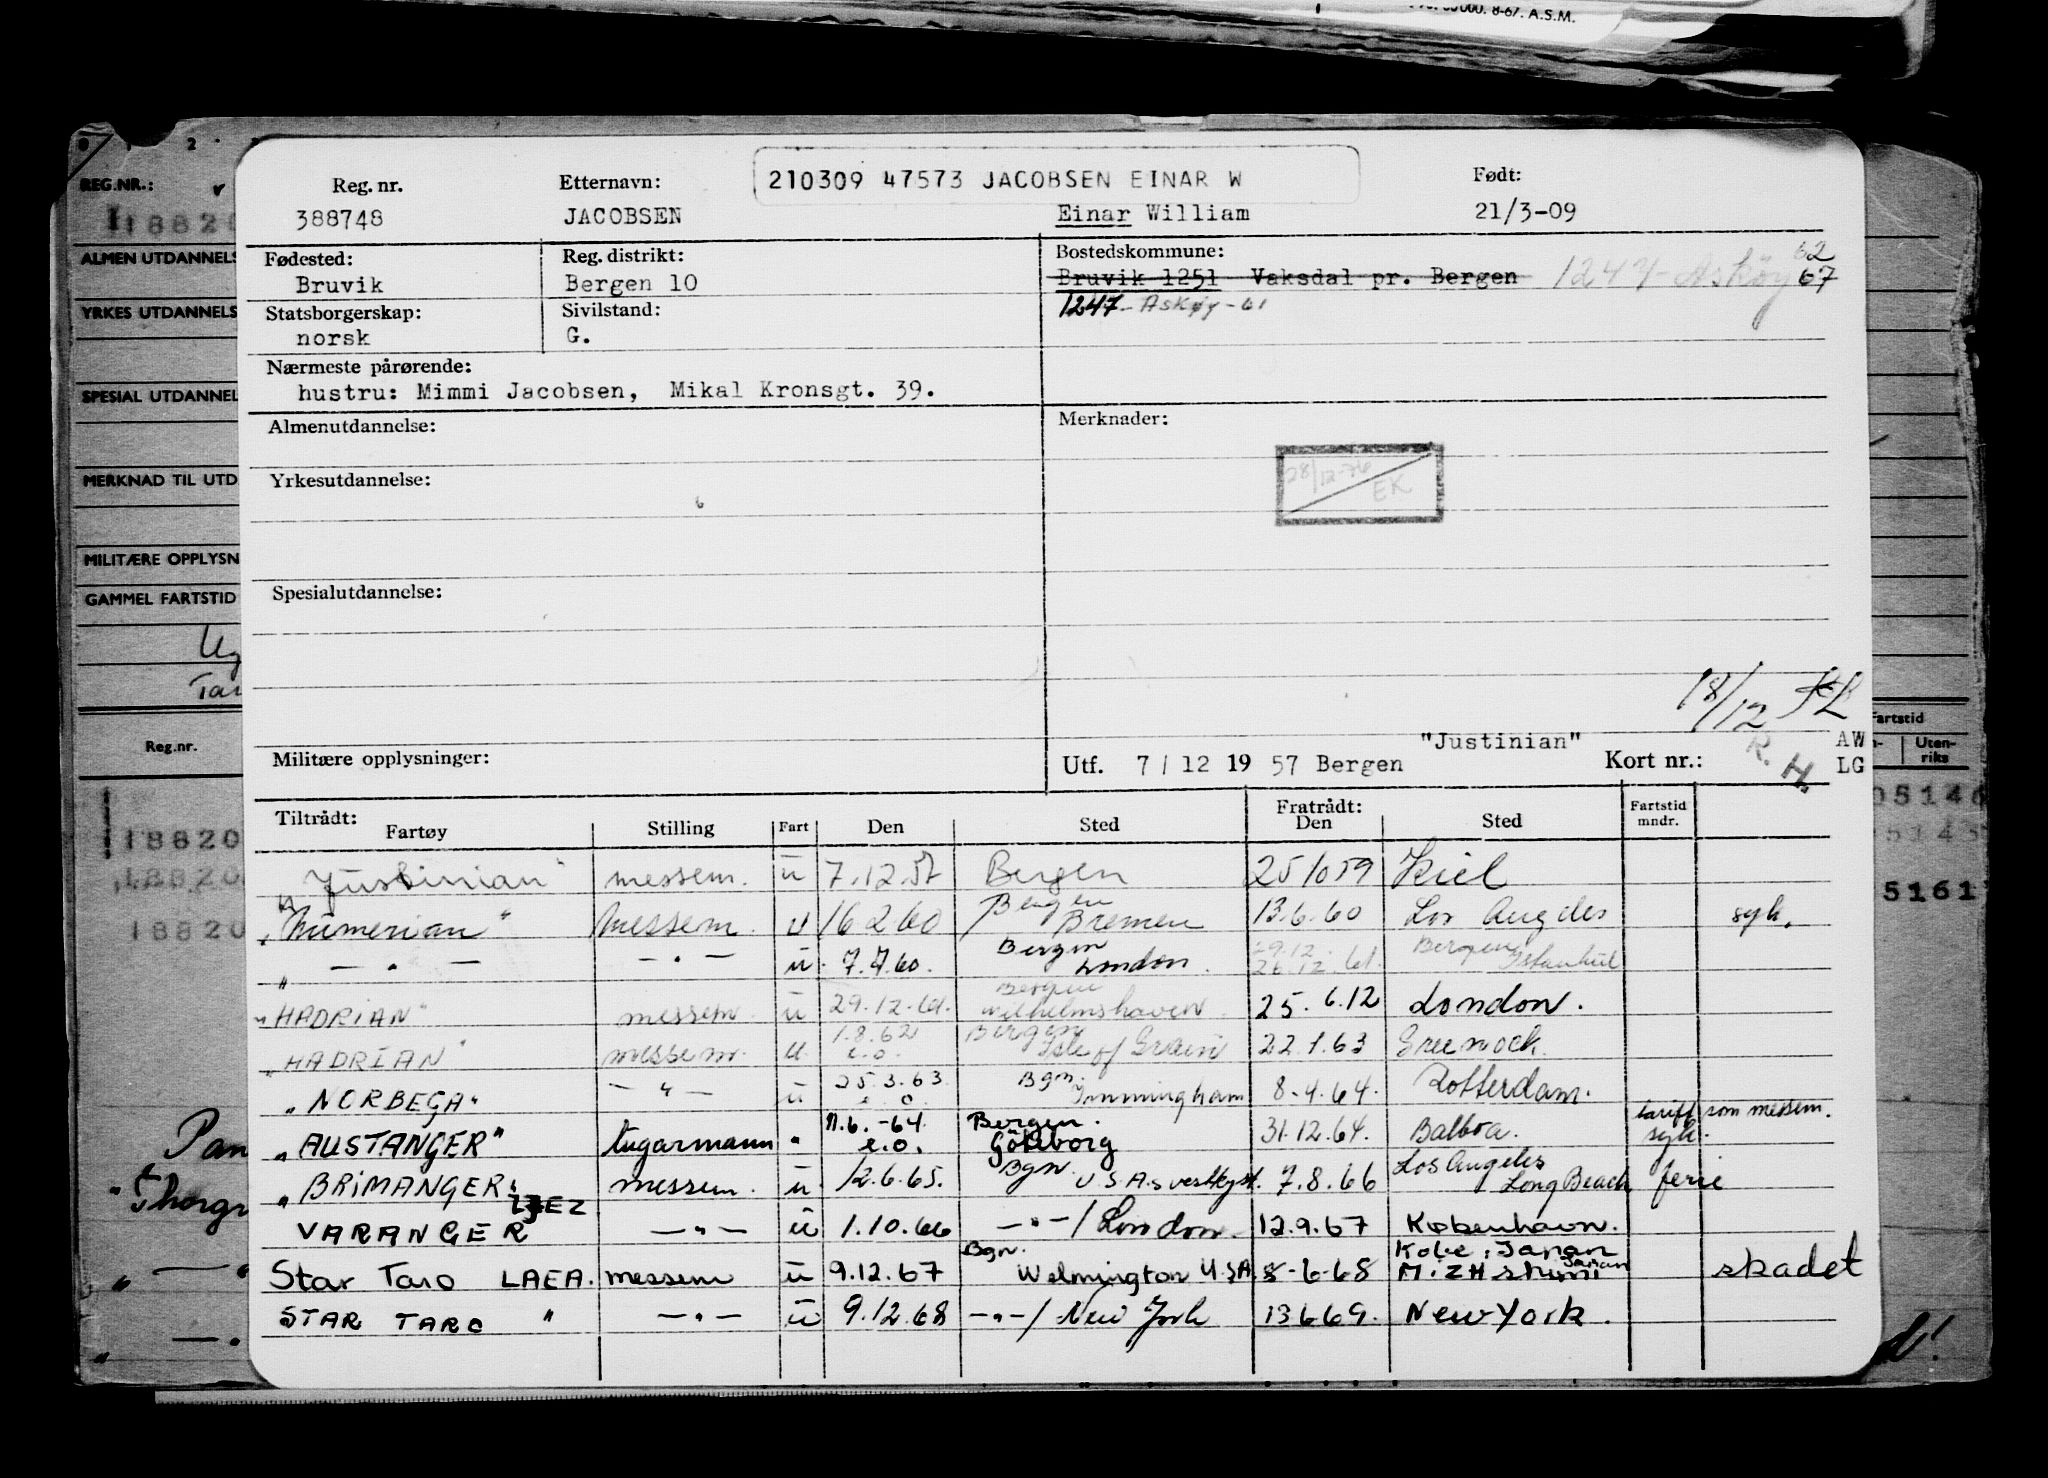 000. 8-67. A.S.M.
0 1 2
REG.NR.:
18820
ALMEN UTDANNELS
YRKES UTDANNELS
SPESIAL UTDANNEL
MERKNAD TIL UTD
MILITÆRE OPPLYSN
GAMMEL FARTSTID
Reg.nr.
18820
18820
18820
Pan
210309 47573 JACOBSEN EINAR W
Reg. nr. Etternavn: Født:
388748 JACOBSEN Einar William 21/3-09
Fødested: Reg. distrikt: Bostedskommune:
Bruvik Bergen 10 Bruvik 1251 Vaksdal pr. Bergen 1247-Askøy 62 67
Statsborgerskap: Sivilstand: 1247-Askøy-61
norsk G.
Nærmeste pårørende:
hustru: Mimmi Jacobsen, Mikal Kronsgt. 39.
Almenutdannelse: Merknader:
28/12-76 EK
Yrkesutdannelse:
Spesialutdannelse:
18/12
"Justinian" R.H. AW
Militære opplysninger: Utf. 7/12 19 57 Bergen Kort nr.: LG
Tiltrådt: Fratrådt: Fartstid
Fartøy Stilling Fart Den Sted Den Sted mndr.
"Justinian" messem. u 7.12.57 Bergen 25/10 59 Kiel
"Numerian" messem. u 16 2 60 Bergen Bremen 13.6.60 Los Angeles syk.
" — " — — " — u. 7.7.60. Bergen London. 29.12. 26.12 61. Bergen Istanbul
"HADRIAN" messem. u 29.12.61. Bergen Wilhelmshaven 25.6.12 London.
"HADRIAN" messem. u. 1.8.62 e.o. Bergen Isle of Grain 22.1.63 Greenock.
"NORBEGA" — " — u 25.3.63 e.o. Bgn. Immingham 8.4.64. Rotterdam.
"AUSTANGER" tugarmann " 11.6.-64. e.o. Bergen. Göteborg 31.12.64. Balboa. tariff som messem. syk.
"BRIMANGER" messem. u 12.6.65. Bgn. U.S.A.s vestkyst. 7.8.66 Los Angeles Long Beach ferie
VARANGER LJEZ — " — u 1.10.66 — " — / London. 12.9.67 København.
Star Taro LAEA. messem u 9.12.67 Bgn. Welmington U.S.A. 8-6-68 Kobe, Japan skadet
STAR TARO " — " — u 9.12.68 — " — / New York 13 6 69. New York.
Fartstid
Uten-
riks
05146
5143
5161